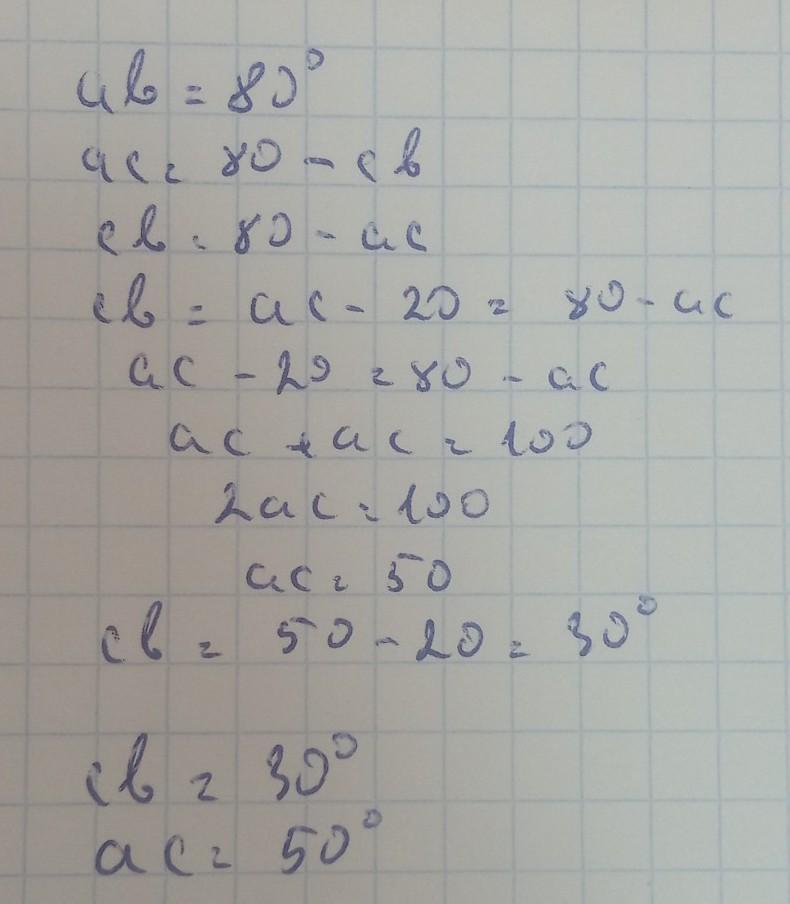 ab = 80°
ac = 80 - cb
cb = 80 - ac
cb = ac - 20 = 80 - ac
ac - 20 = 80 - ac
ac + ac = 100
2ac = 100
ac = 50
cb = 50 - 20 = 30°
cb = 30°
ac = 50°